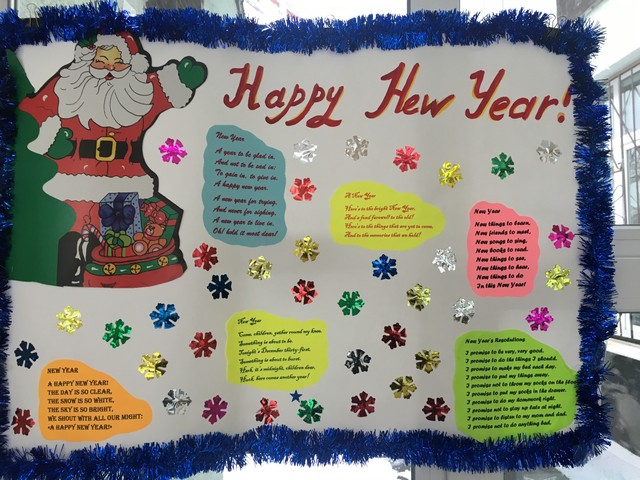 Happy New Year!
New Year
A year to be glad in,
And not to be sad in;
To gain in, to give in,
A happy new year.
A new year for trying,
And never for sighing,
A new year to live in,
Oh! hold it most dear!
A New Year
Here's to the bright New Year,
And a fond farewell to the old!
Here's to the things that are yet to come,
And to the memories that we hold!
New Year
New things to learn,
New friends to meet,
New songs to sing,
New books to read.
New things to see,
New things to hear,
New things to do
In this New Year!
New Year
Come, children, gather round my knee,
Something is about to be.
Tonight's December thirty-first,
Something is about to burst.
Hark, it's midnight, children dear.
Duck, here comes another year!
New Year's Resolutions
I promise to be very, very good.
I promise to do the things I should.
I promise to make my bed each day.
I promise to put my things away.
I promise not to throw my socks on the floor
I promise to put my socks in the drawer.
I promise to do my homework right.
I promise not to stay up late at night.
I promise to listen to my mom and dad.
I promise not to do anything bad.
NEW YEAR
A HAPPY NEW YEAR!
THE DAY IS SO CLEAR,
THE SNOW IS SO WHITE,
THE SKY IS SO BRIGHT,
WE SHOUT WITH ALL OUR MIGHT:
«A HAPPY NEW YEAR»